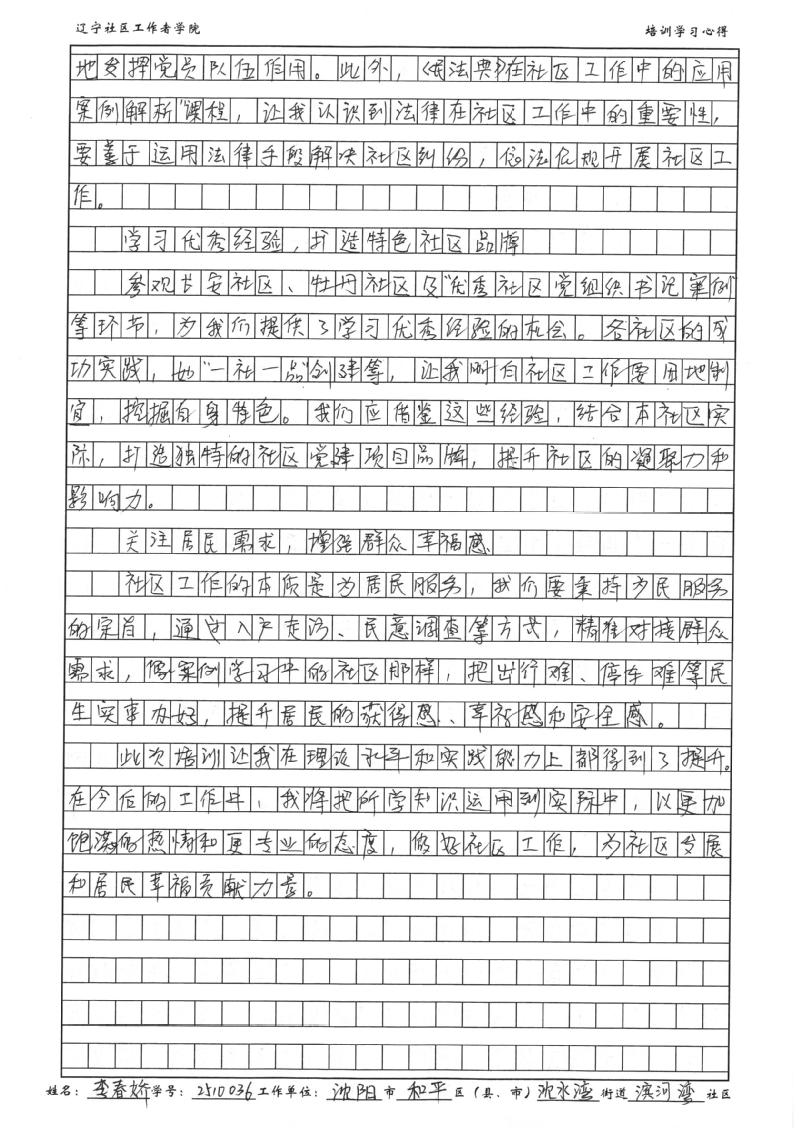 辽宁社区工作者学院 培训学习心得
地发挥党员队伍作用。此外，《民法典》在社区工作中的应用
案例解析"课程，让我认识到法律在社区工作中的重要性，
要善于运用法律手段解决社区纠纷，依法依规开展社区工
作。
学习优秀经验，打造特色社区品牌
参观长安社区、牡丹社区及"优秀社区党组织书记案例"
等环节，为我们提供了学习优秀经验的机会。各社区的成
功实践，如"一社一品"创建等，让我明白社区工作要因地制
宜，挖掘自身特色。我们应借鉴这些经验，结合本社区实
际，打造独特的社区党建项目品牌，提升社区的凝聚力和
影响力。
关注居民需求，增强群众幸福感
社区工作的本质是为居民服务，我们要秉持为民服务
的宗旨，通过入户走访、民意调查等方式，精准对接群众
需求，像案例学习中的社区那样，把出行难、停车难等民
生实事办好，提升居民的获得感、幸福感和安全感。
此次培训让我在理论水平和实践能力上都得到了提升。
在今后的工作中，我将把所学知识运用到实际中，以更加
饱满的热情和更专业的态度，做好社区工作，为社区发展
和居民幸福贡献力量。
姓名：李春娇学号：2510036工作单位：沈阳市和平区（县、市）沈水湾街道滨河湾社区